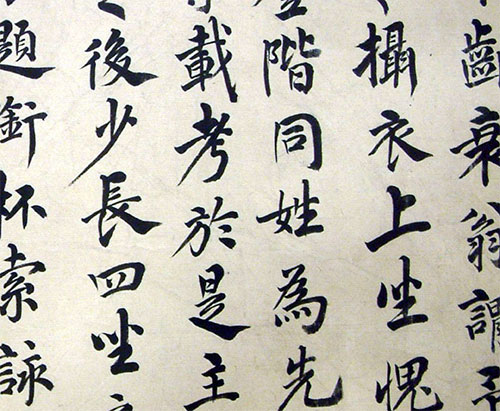 齒衰翁謂
攝衣上坐愧
階同姓為先
載考於是主
後少長四坐
題杯索詠